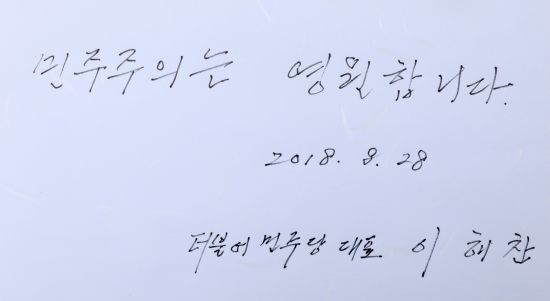 민주주의는 영원합니다.
2018. 8. 28
더불어민주당 대표 이해찬